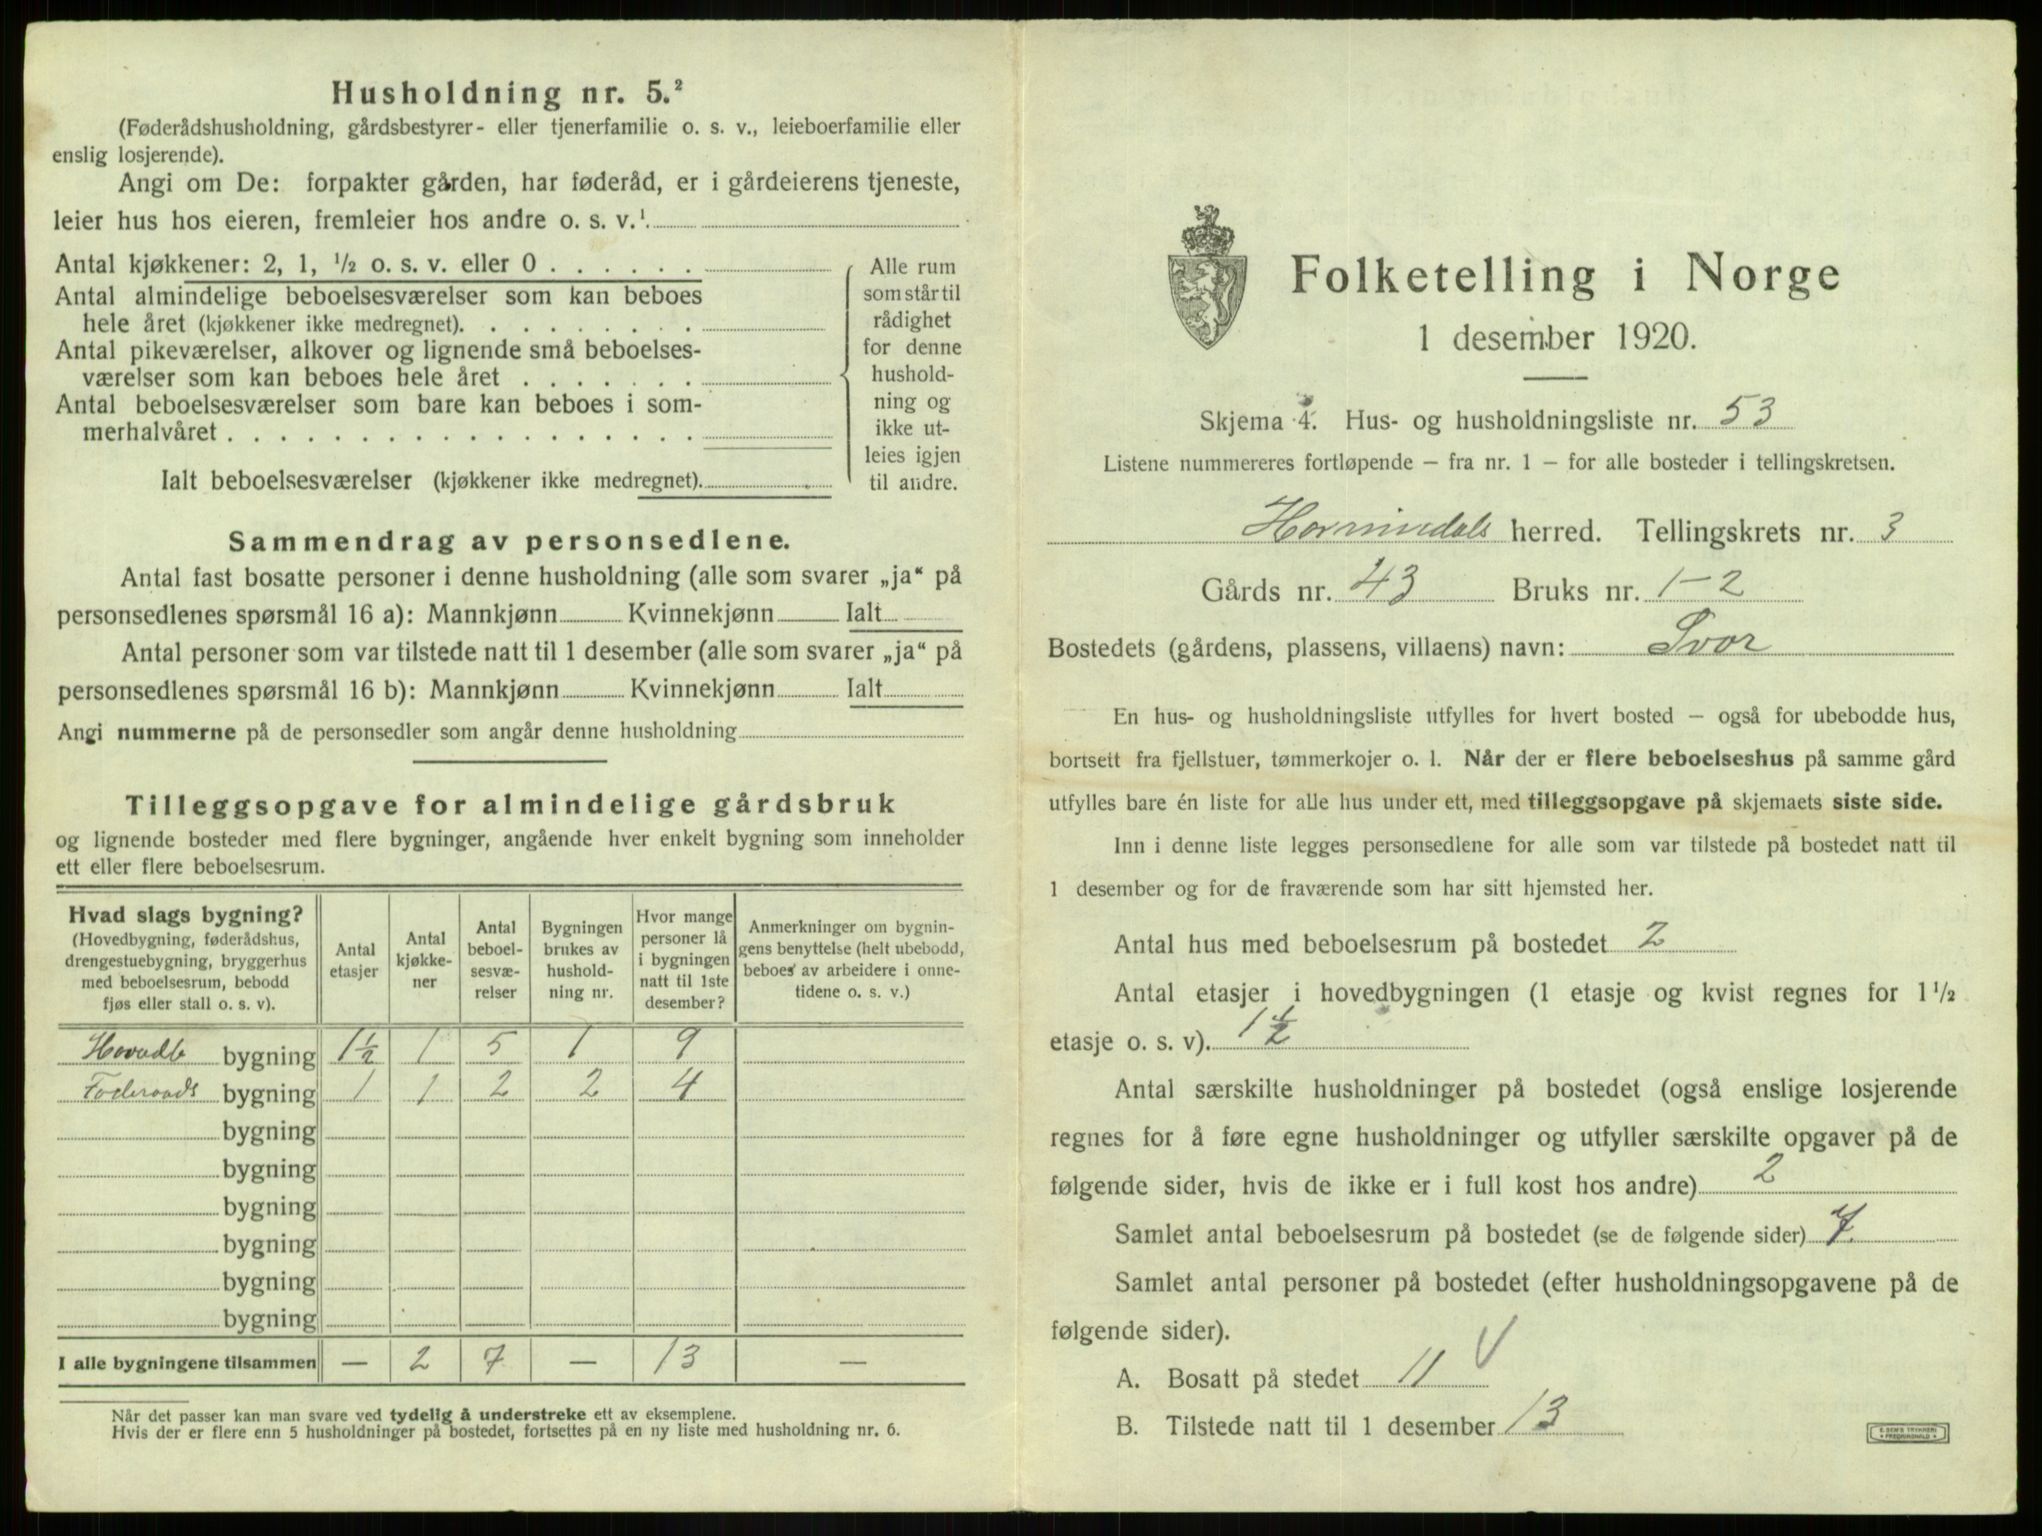 Husholdning nr. 5.²
(Føderådshusholdning, gårdsbestyrer- eller tjenerfamilie o. s. v., leieboerfamilie eller
enslig losjerende).
Angi om De: forpakter gården, har føderåd, er i gårdeierens tjeneste,
leier hus hos eieren, fremleier hos andre o. s. v.¹
Antal kjøkkener: 2, 1, ½ o. s. v. eller 0 . . . . . .
Antal almindelige beboelsesværelser som kan beboes
hele året (kjøkkener ikke medregnet). . . . . . . . .
Antal pikeværelser, alkover og lignende små beboelses-
værelser som kan beboes hele året . . . . . . .
Antal beboelsesværelser som bare kan beboes i som-
merhalvåret . . . . . . . . . . . . . . . . . .
Ialt beboelsesværelser (kjøkkener ikke medregnet).
Alle rum
som står til
rådighet
for denne
hushold-
ning og
ikke ut-
leies igjen
til andre.
Sammendrag av personsedlene.
Antal fast bosatte personer i denne husholdning (alle som svarer „ja“ på
personsedlenes spørsmål 16 a): Mannkjønn Kvinnekjønn Ialt
Antal personer som var tilstede natt til 1 desember (alle som svarer „ja“ på
personsedlenes spørsmål 16 b): Mannkjønn Kvinnekjønn Ialt
Angi nummerne på de personsedler som angår denne husholdning
Tilleggsopgave for almindelige gårdsbruk
og lignende bosteder med flere bygninger, angående hver enkelt bygning som inneholder
ett eller flere beboelsesrum.
Hvad slags bygning?
(Hovedbygning, føderådshus,
drengestuebygning, bryggerhus
med beboelsesrum, bebodd
fjøs eller stall o. s. v).
Antal
etasjer
Antal
kjøkke-
ner
Antal
beboel-
sesvæ-
relser
Bygningen
brukes av
hushold-
ning nr.
Hvor mange
personer lå
i bygningen
natt til 1ste
desember?
Anmerkninger om bygnin-
gens benyttelse (helt ubebodd,
beboes av arbeidere i onne-
tidene o. s. v.)
Hovedb bygning 1½ 1 5 1 9
Føderaads bygning 1 1 2 2 4
bygning
bygning
bygning
bygning
bygning
bygning
I alle bygningene tilsammen — 2 7 — 13 —
Når det passer kan man svare ved tydelig å understreke ett av eksemplene.
Hvis der er flere enn 5 husholdninger på bostedet, fortsettes på en ny liste med husholdning nr. 6.
Folketelling i Norge
1 desember 1920.
Skjema 4. Hus- og husholdningsliste nr. 53
Listene nummereres fortløpende – fra nr. 1 – for alle bosteder i tellingskretsen.
Hornindals herred. Tellingskrets nr. 3
Gårds nr. 43 Bruks nr. 1-2
Bostedets (gårdens, plassens, villaens) navn: Svor
En hus- og husholdningsliste utfylles for hvert bosted – også for ubebodde hus,
bortsett fra fjellstuer, tømmerkojer o. l. Når der er flere beboelseshus på samme gård
utfylles bare én liste for alle hus under ett, med tilleggsopgave på skjemaets siste side.
Inn i denne liste legges personsedlene for alle som var tilstede på bostedet natt til
1 desember og for de fraværende som har sitt hjemsted her.
Antal hus med beboelsesrum på bostedet 2
Antal etasjer i hovedbygningen (1 etasje og kvist regnes for 1½
etasje o. s. v). 1½
Antal særskilte husholdninger på bostedet (også enslige losjerende
regnes for å føre egne husholdninger og utfyller særskilte opgaver på de
følgende sider, hvis de ikke er i full kost hos andre) 2
Samlet antal beboelsesrum på bostedet (se de følgende sider) 7.
Samlet antal personer på bostedet (efter husholdningsopgavene på de
følgende sider).
A. Bosatt på stedet 11 V
B. Tilstede natt til 1 desember 13